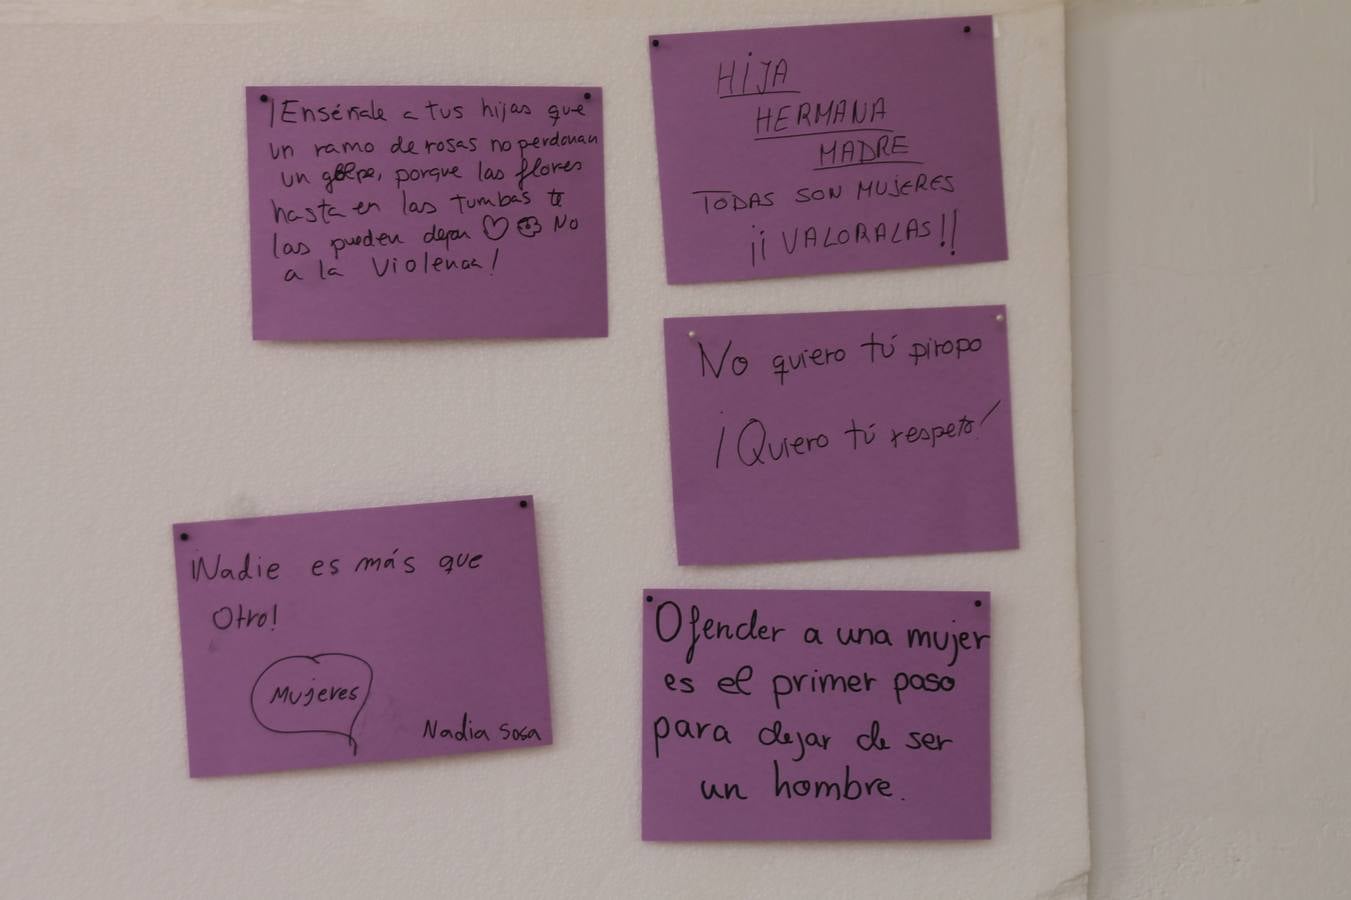 ¡Enséñale a tus hijas que
un ramo de rosas no perdonan
un golpe, porque las flores
hasta en las tumbas te
las pueden dejar No
a la Violencia!
HIJA
HERMANA
MADRE
TODAS SON MUJERES
¡¡VALORALAS!!
No quiero tú piropo
¡Quiero tú respeto!
¡Nadie es más que
Otro!
Mujeres
Nadia Sosa
Ofender a una mujer
es el primer paso
para dejar de ser
un hombre.